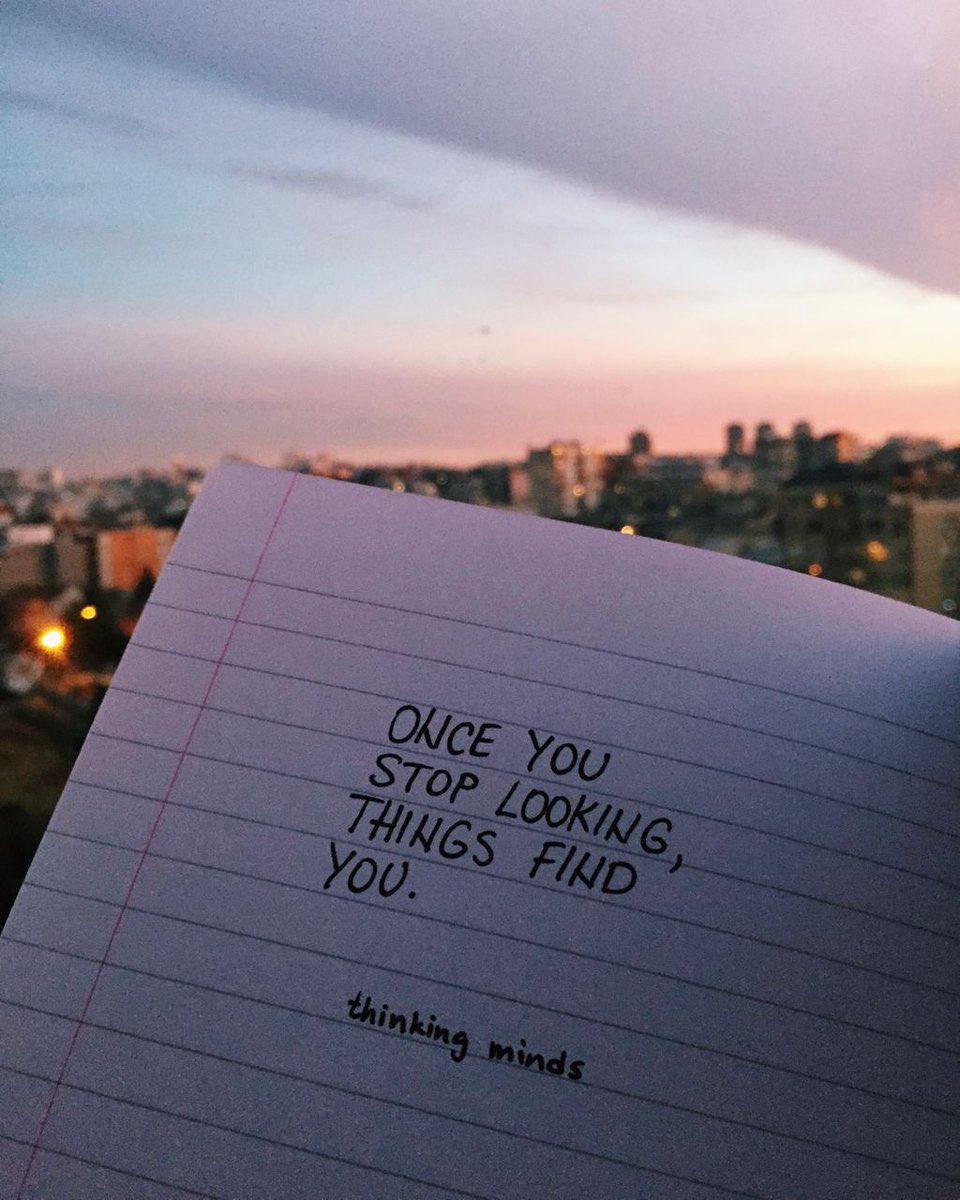 ONCE YOU
STOP LOOKING,
THINGS FIND
YOU.
thinking minds